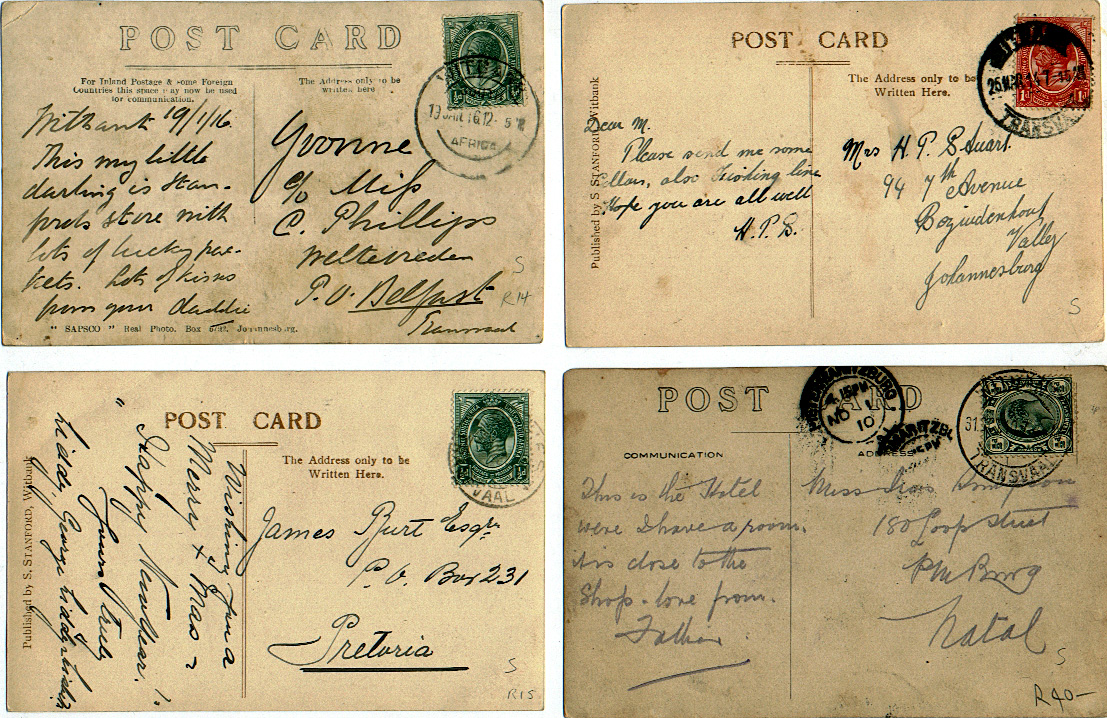 POST CARD
For Inland Postage & some Foreign
Countries this space may now be used
for communication.
The Address only to be
written here
Witbank 19/1/16.
This my little
darling is Stan-
fords store with
lots of lucky pac-
kets. Lots of kisses
from your daddie
Yvonne
c/o Miss
C. Phillips
Weltevreden
P.O. Belfast
Transvaal
" SAPSCO " Real Photo. Box Johannesburg.
S
R14
WITBANK
19 JAN 16 12-
AFRICA
½d
POST CARD
The Address only to be
Written Here.
Published by S STANFORD, Witbank
Dear M.
Please send me some
collars, also fishing line
Hope you are all well
H.P.S.
Mrs H. P. Stuart
94 7th Avenue
Bezuidenhout
Valley
Johannesburg
TRANSVAAL
1d
S
POST CARD
The Address only to be
Written Here.
Published by S. STANFORD, Witbank
Wishing you a
Merry X Mas
Happy New Year.
Yours truly
James Burt Esqr.
P. O. Box 231
Pretoria
VAAL
½d
S
R15
POST CARD
COMMUNICATION
ADDRESS
This is the Hotel
were I have a room.
it is close to the
Shop. love from.
Father
Miss
180 Loop Street
PM Burg
Natal
PIETERMARITZBURG
NO 1
10
31
TRANSVAAL
S
R40-